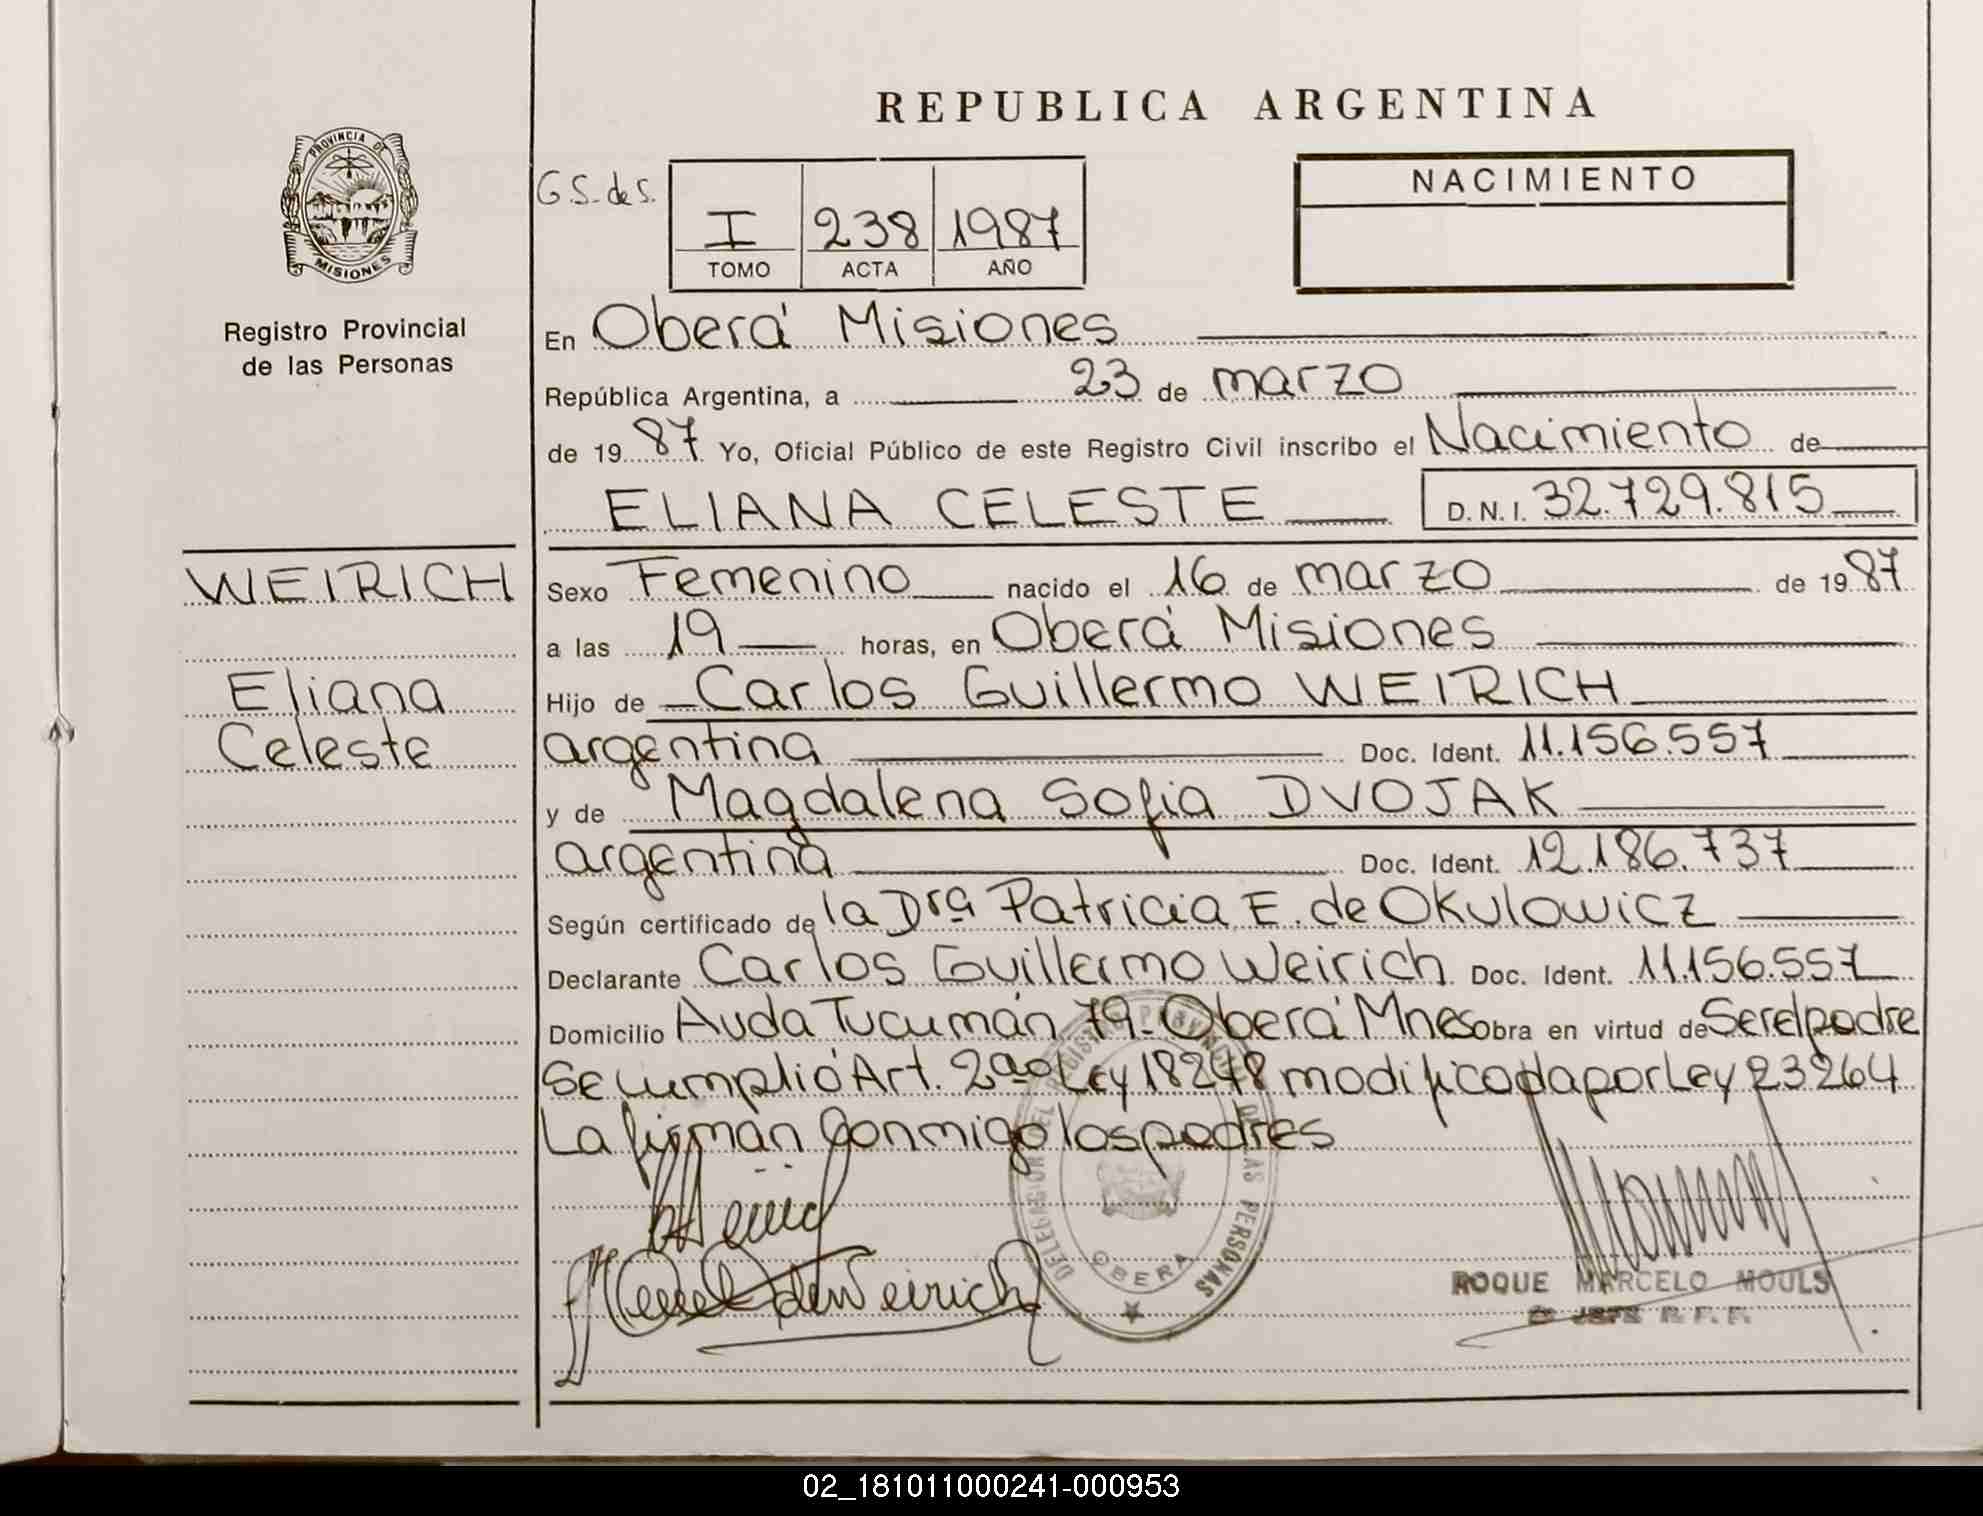 REPUBLICA ARGENTINA
PROVINCIA DE
MISIONES
Registro Provincial
de las Personas
G.S. de S.
I 238 1987
TOMO ACTA AÑO
NACIMIENTO
En Oberá Misiones
República Argentina, a 23 de marzo
de 1987 Yo, Oficial Público de este Registro Civil inscribo el Nacimiento de
ELIANA CELESTE D.N.I. 32.729.815
WEIRICH
Eliana
Celeste
Sexo Femenino nacido el 16 de marzo de 1987
a las 19 horas, en Oberá Misiones
Hijo de Carlos Guillermo WEIRICH
argentina Doc. Ident. 11.156.557
y de Magdalena Sofia DVOJAK
argentina Doc. Ident. 12.186.737
Según certificado de la Drª Patricia E. de Okulowicz
Declarante Carlos Guillermo Weirich Doc. Ident. 11.156.557
Domicilio Avda Tucumán 79- Oberá Mnes obra en virtud de Ser el padre
Se cumplió Art. 2do Ley 18248 modificada por Ley 23264
La firman conmigo los padres
DELEGACION DEL REGISTRO PROVINCIAL DE LAS PERSONAS
OBERA
de Weirich
ROQUE MARCELO MOULS
JEFE
02_181011000241-000953